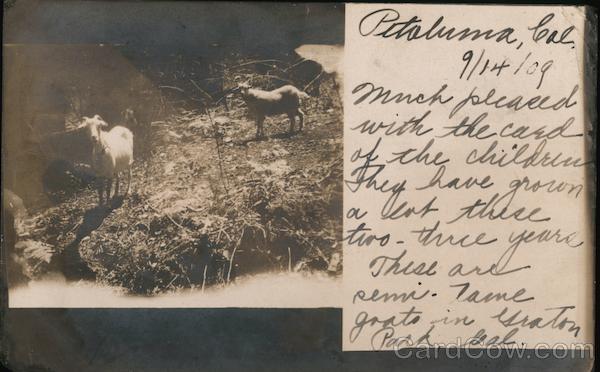 Petaluma, Cal.
9/14/09
Much pleased
with the card
of the children
They have grown
a lot these
two-three years
These are
semi-tame
goats in Graton
Park Cal.
CardCow.com